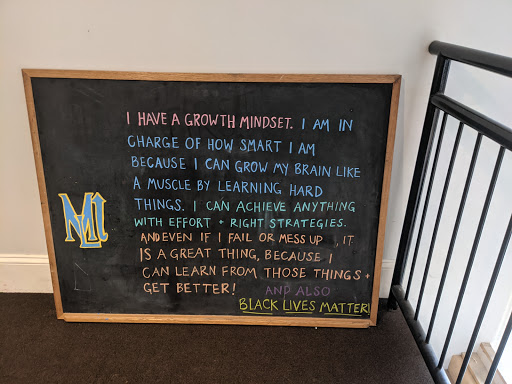 I HAVE A GROWTH MINDSET. I AM IN
CHARGE OF HOW SMART I AM
BECAUSE I CAN GROW MY BRAIN LIKE
A MUSCLE BY LEARNING HARD
THINGS. I CAN ACHIEVE ANYTHING
WITH EFFORT + RIGHT STRATEGIES.
AND EVEN IF I FAIL OR MESS UP , IT
IS A GREAT THING, BECAUSE I
CAN LEARN FROM THOSE THINGS +
GET BETTER! AND ALSO
BLACK LIVES MATTER!